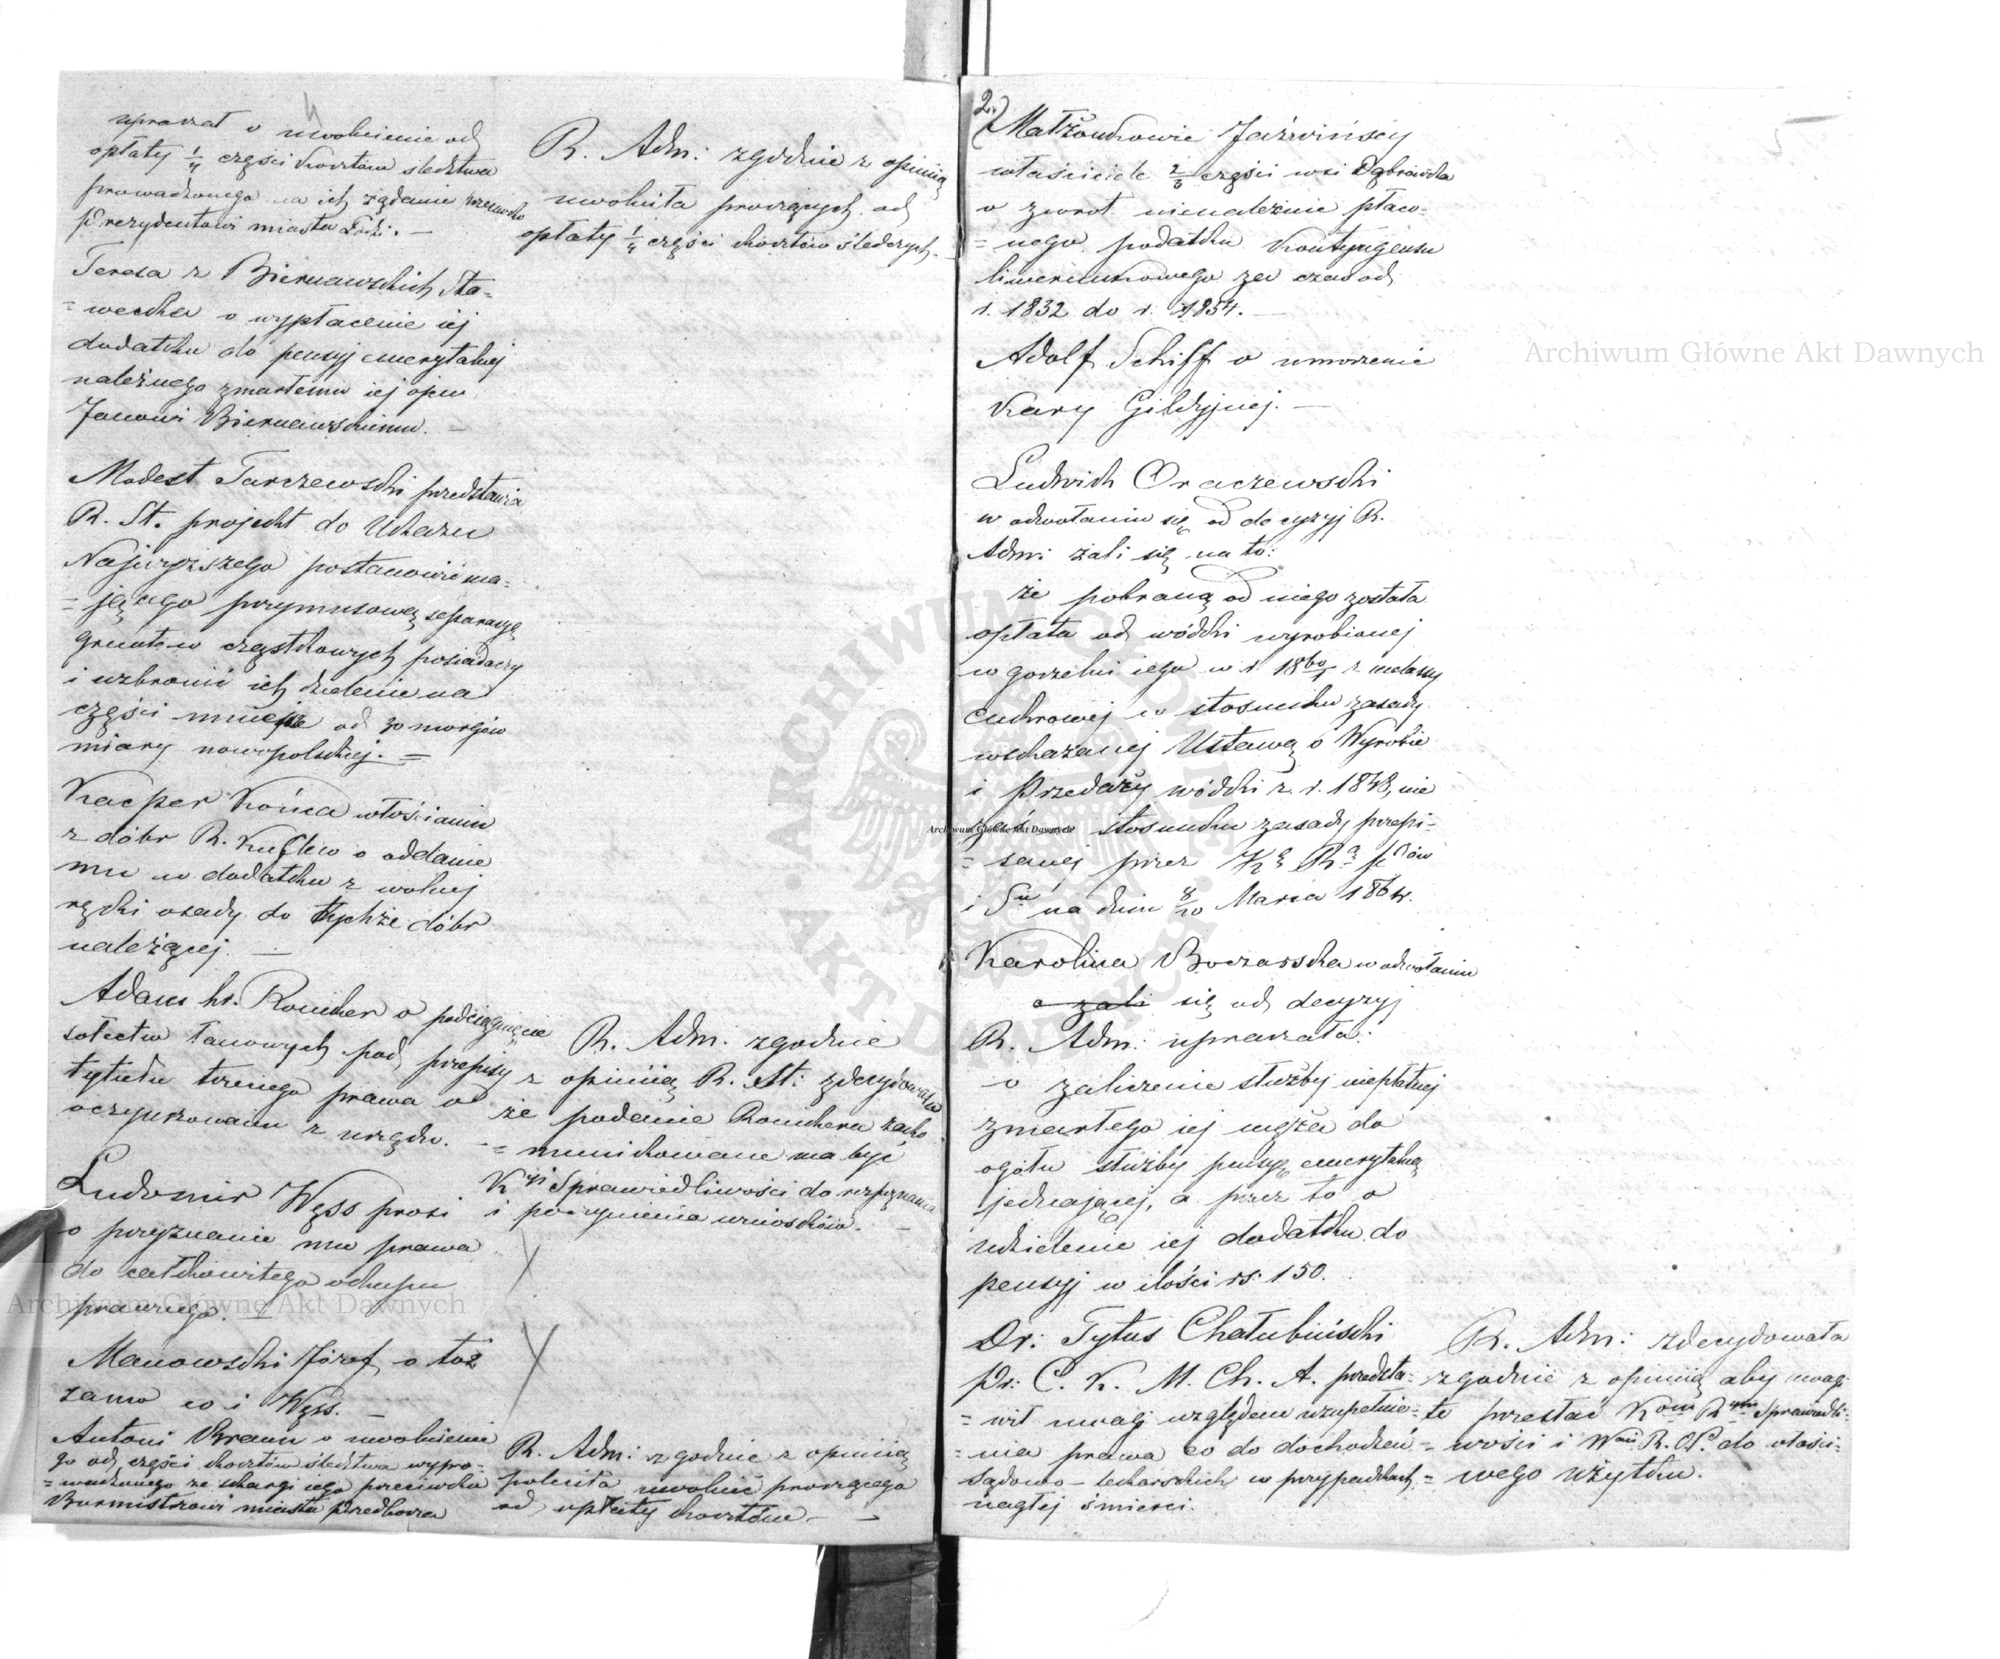 4
upraszał o uwolnienie od
opłaty 1/4 części kosztów śledztwa
prowadzonego na ich żądanie przeciwko
Prezydentowi miasta Łodzi. —
R. Adm: zgodnie z opinią
uwolniła proszących od
opłaty 1/4 części kosztów śledczych. —
Teresa z Biernawskich Sta-
= wecka o wypłacenie iéj
dodatku do pensyj emerytalnéj
należnego zmarłemu iéj ojcu
Janowi Biernawskiemu. —
Modest Tarczewski przedstawia
R. St. projekt do Ukazu
Najwyższego postanowić ma-
= jącego przymusową separacyę
gruntów cząstkowych posiadaczy
i wzbronić ich dzielenie na
części mniejsze od 30 morgów
miary nowopolskiéj. =
Kacper Końca włościanin
z dóbr R. Kuflew o oddanie
mu w dodatku z wolnéj
ręki osady do tychże dóbr
należącéj. —
Adam hr. Ronikier o podciągnięcie
sołectw łanowych pod przepisy
tytułu trzeciego prawa o
oczynszowaniu z urzędu.
R. Adm. zgodnie
z opinią R. St: zdecydowała
że podanie Ronikera zako
= munikowane ma być
Kyi Sprawiedliwości do rozpoznania
i poczynienia wniosków. —
Ludomir Węss prosi
o przyznanie mu prawa
do całkowitego okupu
prawnego. —
Manowski Józef o toż
samo co i Węss. —
Antoni Braun o uwolnienie
go od części kosztów śledztwa wypro-
= wadzonego ze skargi iego przeciwko
Burmistrzowi miasta Przedborza
R. Adm: zgodnie z opinią
poleciła uwolnić proszącego
od opłaty kosztów. —
2.) Małżonkowie Jaźwińscy
właściciele 2/3 części wsi Dąbrówka
o zwrot nienależnie płaco-
= nego podatku Kontyngensu
liwerunkowego za czas od
r. 1832 do r. 1854. —
Adolf Schiff o umorzenie
Kary Gildyjnéj. —
Ludwik Oraczewski
w odwołaniu się od decyzyj R.
Adm: żali się na to:
że pobraną od niego została
opłata od wódki wyrobionéj
w gorzelni iego w r. 1860/1 z melassy
cukrowéj w stosunku zasady
wskazanéj Ustawą o Wyrobie
i Przedaży wódki z r. 1848, nie
zaś w stosunku zasady przepi-
= sanéj przez
i Su na dniu 8/20 Marca 1864.
Karolina Boczarska w odwołaniu
o żali się od decyzyj
R. Adm: upraszała:
o zaliczenie służby niepłatnéj
zmarłego iéj męża do
ogółu służby pensyę emerytalną
jednającéj, a przez to o
udzielenie iéj dodatku do
pensyj w ilości rs: 150.
Dr: Tytus Chałubiński
Pr: C. K. M. Ch. A. przedsta-
= wił uwagi względem uzupełnie-
= nia prawa co do dochodzeń
sądowo-lekarskich w przypadkach
nagłéj śmierci.
R. Adm: zdecydowała
zgodnie z opinią aby uwagi
te przesłać Kom Rzą Sprawiedli-
= wości i W. R. O. P. do właści-
= wego użytku.
Archiwum Główne Akt Dawnych
Archiwum Główne Akt Dawnych
Archiwum Główne Akt Dawnych
ARCHIWUM GŁÓWNE AKT DAWNYCH